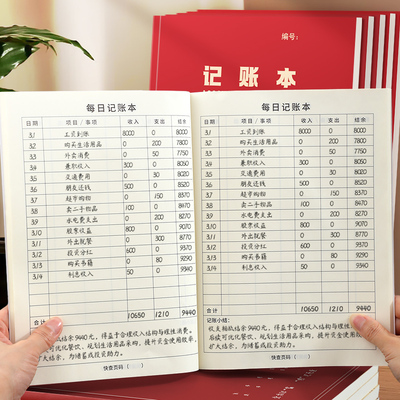 编号:
记账本
每日记账本
日期 项目/事项 收入 支出 结余
3.1 工资到账 8000 0 8000
3.2 购买生活用品 0 200 7800
3.3 外卖消费 0 50 7750
3.4 兼职收入 300 0 8050
3.5 交通费用 0 30 8020
3.6 朋友还钱 500 0 8520
3.7 超市购物 0 150 8370
3.8 卖二手物品 100 0 8470
3.9 水电费支出 0 200 8270
3/10 股票收益 800 0 9070
3/11 外出就餐 0 300 8770
3/12 投资分红 600 0 9370
3/13 购买书籍 0 80 9290
3/14 利息收入 50 0 9340
合计 10650 1210 9440
结余9440元,得益于合理收入结构与理性消费。
可优化餐饮、规划生活用品采购,提升资金使用效率,
为储蓄或投资助力。
快查页码( )
每日记账本
日期 项目/事项 收入 支出 结余
3.1 工资到账 8000 0 8000
3.2 购买生活用品 0 200 7800
3.3 外卖消费 0 50 7750
3.4 兼职收入 300 0 8050
3.5 交通费用 0 30 8020
3.6 朋友还钱 500 0 8520
3.7 超市购物 0 150 8370
3.8 卖二手物品 100 0 8470
3.9 水电费支出 0 200 8270
3/10 股票收益 800 0 9070
3/11 外出就餐 0 300 8770
3/12 投资分红 600 0 9370
3/13 购买书籍 0 80 9290
3/14 利息收入 50 0 9340
合计 10650 1210 9440
记账小结:
收支相抵结余9440元,得益于合理收入结构与理性消费。
后续可优化餐饮、规划生活用品采购,提升资金使用效率,
扩大结余,为储蓄或投资助力。
快查页码( )